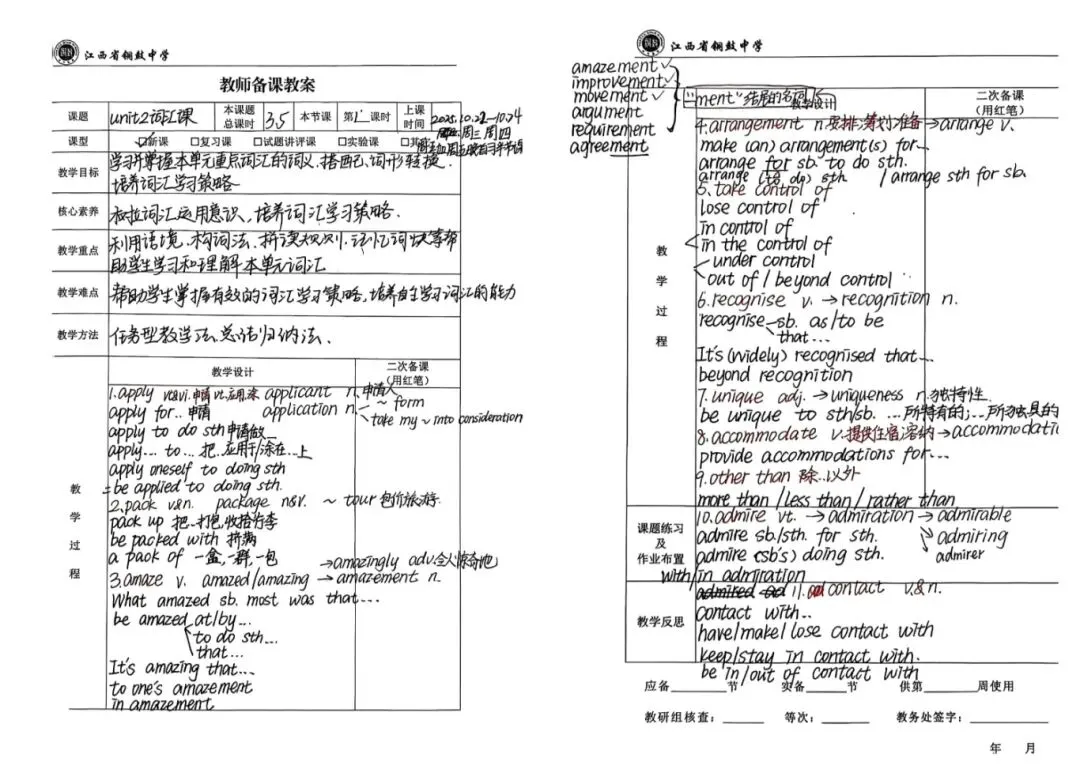 江西省铜鼓中学
教师备课教案
课题 unit2词汇课 本课题总课时 3.5 本节课 第1课时 上课时间 2025.10.22-10.24
周三周四
课型 ☑新课 □复习课 □试题讲评课 □实验课
教学目标 学习并掌握本单元重点词汇的词义、搭配、词形转换.
培养词汇学习策略
核心素养 词汇运用意识,培养词汇学习策略.
教学重点 利用语境、构词法、拼读规则、记忆词块等帮
助学生学习和理解本单元词汇
教学难点 帮助学生掌握有效的词汇学习策略,培养自主学习词汇的能力
教学方法 任务型教学法、总结归纳法、
教学设计 二次备课
(用红笔)
教学过程
1.apply vt&vi.申请 vt.应用;涂 applicant n.申请人
apply for..申请 application n. ~ form
take my ~ into consideration
apply to do sth申请做...
apply... to... 把..应用于/涂在...上
apply oneself to doing sth
=be applied to doing sth.
2.pack v&n. package n&v. ~ tour 包价旅游
pack up 把..打包,收拾行李
be packed with 挤满
a pack of 一盒,一群,一包
→amazingly adv.令人惊奇地
3.amaze v. amazed/amazing → amazement n.
What amazed sb. most was that...
be amazed at/by...
to do sth...
that...
It's amazing that...
to one's amazement
in amazement
江西省铜鼓中学
amazement ✓
improvement ✓
movement ✓
argument
requirement
agreement
"ment"结尾的名词
教学设计 二次备课
(用红笔)
教学过程
4.arrangement n.安排;筹划;准备→arrange v.
make (an) arrangement(s) for...
arrange for sb. to do sth.
arrange (to do) sth. / arrange sth for sb.
5.take control of
lose control of
in control of
in the control of
under control
out of / beyond control
6.recognise v. → recognition n.
recognise sb. as/to be
that...
It's (widely) recognised that...
beyond recognition
7.unique adj. →uniqueness n.独特性
be unique to sth/sb. ...所特有的;...所独具的
8.accommodate v.提供住宿;容纳→accommodatio
provide accommodations for...
9.other than 除..以外
more than / less than / rather than
课题练习及作业布置
10.admire vt. →admiration → admirable
admire sb./sth. for sth. admiring
admire (sb's) doing sth. admirer
with/in admiration
教学反思
11. contact v.&n.
contact with...
have/make/lose contact with
keep/stay in contact with.
be in/out of contact with
应备____节 实备____节 供第____周使用
教研组核查:____ 等次:____ 教务处签字:____
年 月